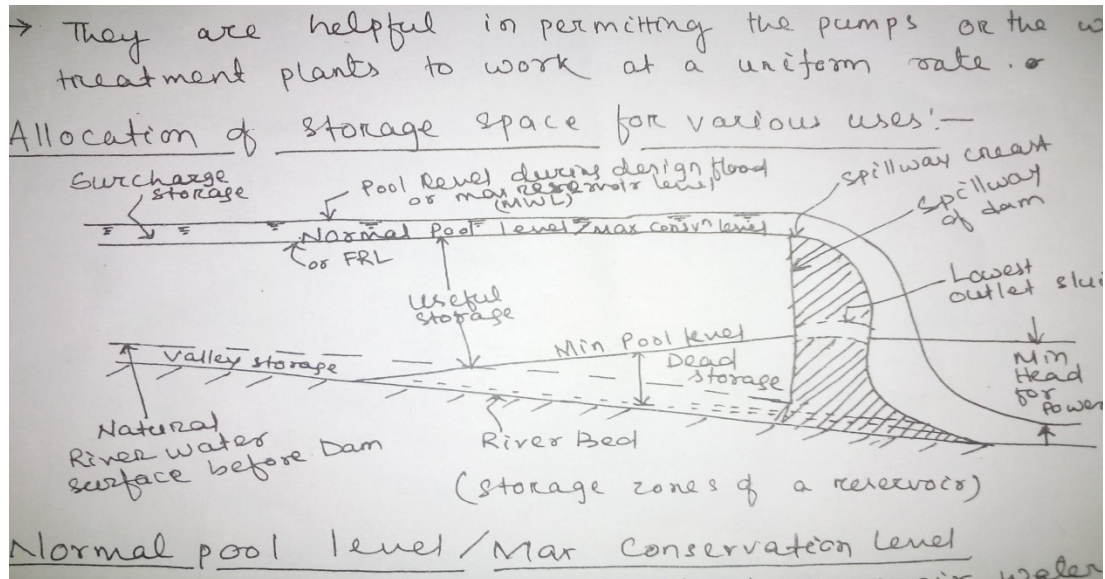 → They are helpful in permitting the pumps or the
treatment plants to work at a uniform rate.
Allocation of storage space for various uses:-
Surcharge
storage
Pool level during design flood
or max reservoir level
(MWL)
spillway creast
spillway
of dam
Normal Pool level/Max Consvn level
or FRL
Lowest
outlet
Useful
storage
Min Pool level
Valley storage
Dead
storage
Min
Head
for
Power
Natural
River water
surface before Dam
River Bed
(storage zones of a reservoir)
Normal pool level/Max Conservation Level
water